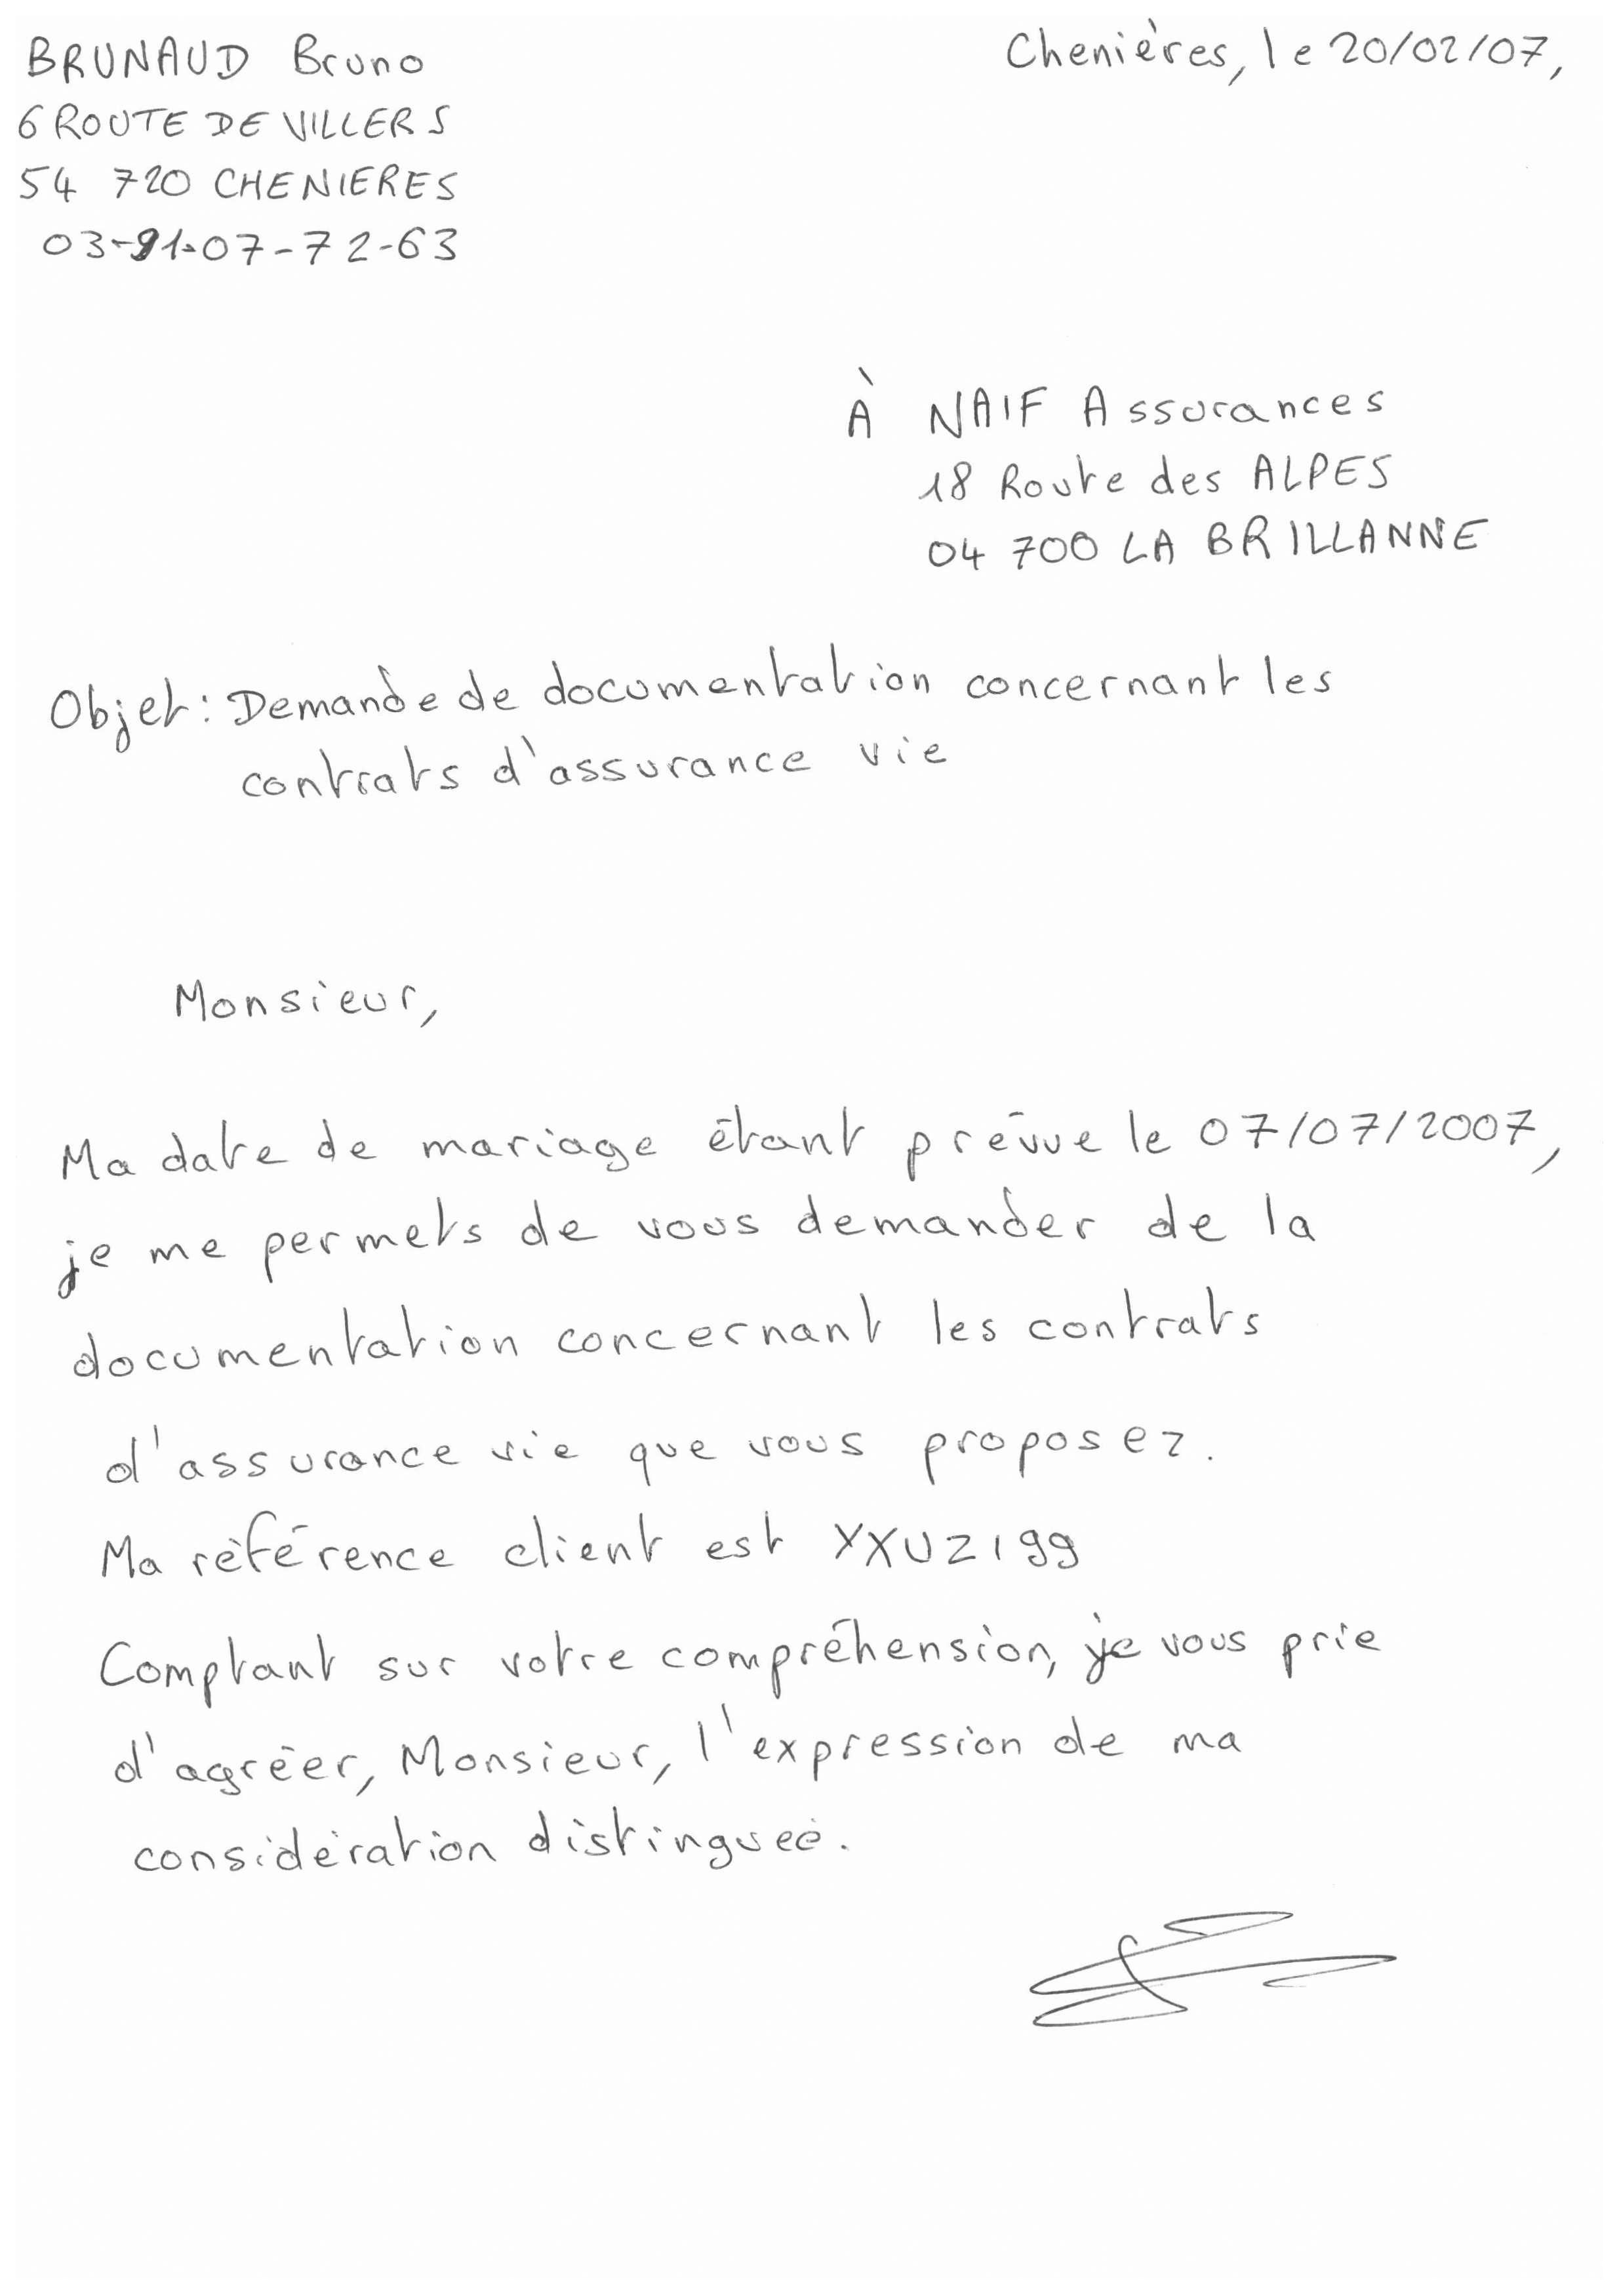 BRUNAUD Bruno
Chenières, le 20/02/07,
6 ROUTE DE VILLERS
54 720 CHENIERES
03-91-07-72-63
À NAIF Assurances
18 Route des ALPES
04 700 LA BRILLANNE
Objet: Demande de documentation concernant les
contrats d'assurance vie
Monsieur,
Ma date de mariage étant prévue le 07/07/2007,
je me permets de vous demander de la
documentation concernant les contrats
d'assurance vie que vous proposez.
Ma référence client est XXUZI99
Comptant sur votre compréhension, je vous prie
d'agréer, Monsieur, l'expression de ma
considération distinguée.